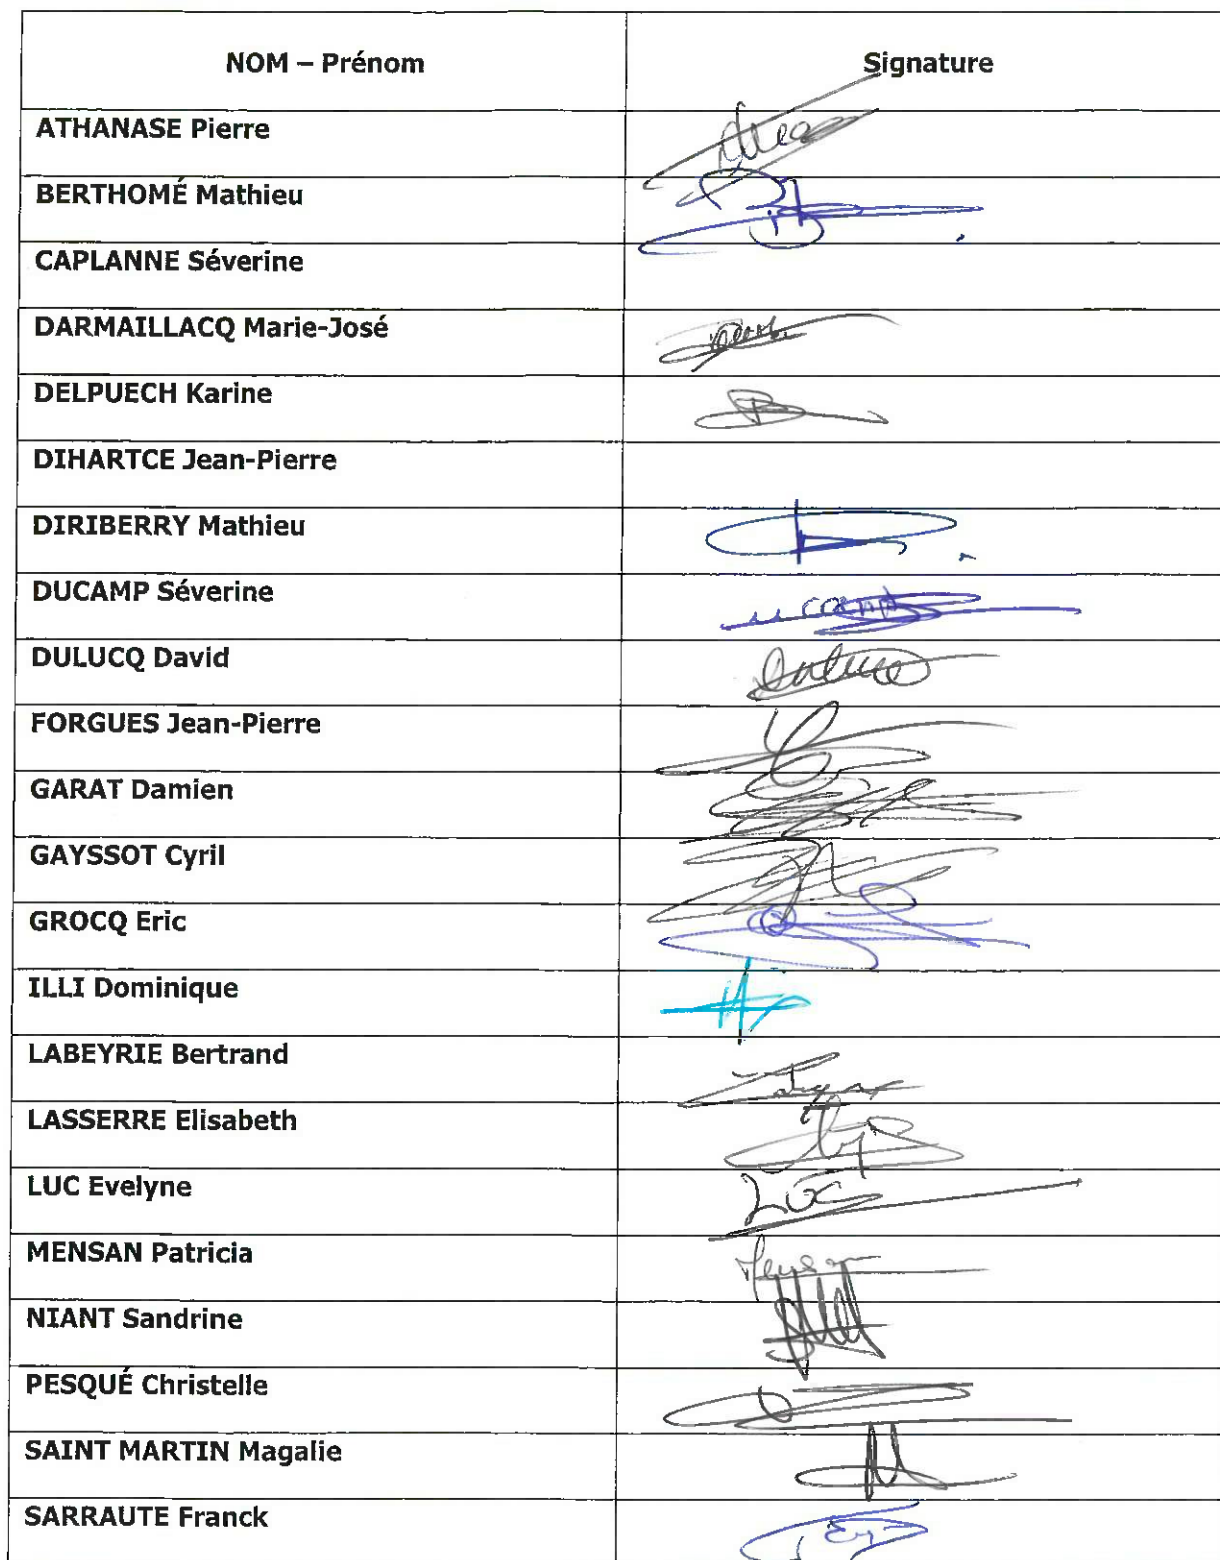 NOM – Prénom Signature
ATHANASE Pierre
BERTHOMÉ Mathieu
CAPLANNE Séverine
DARMAILLACQ Marie-José
DELPUECH Karine
DIHARTCE Jean-Pierre
DIRIBERRY Mathieu
DUCAMP Séverine
DULUCQ David
FORGUES Jean-Pierre
GARAT Damien
GAYSSOT Cyril
GROCQ Eric
ILLI Dominique
LABEYRIE Bertrand
LASSERRE Elisabeth
LUC Evelyne LUC
MENSAN Patricia
NIANT Sandrine
PESQUÉ Christelle
SAINT MARTIN Magalie
SARRAUTE Franck